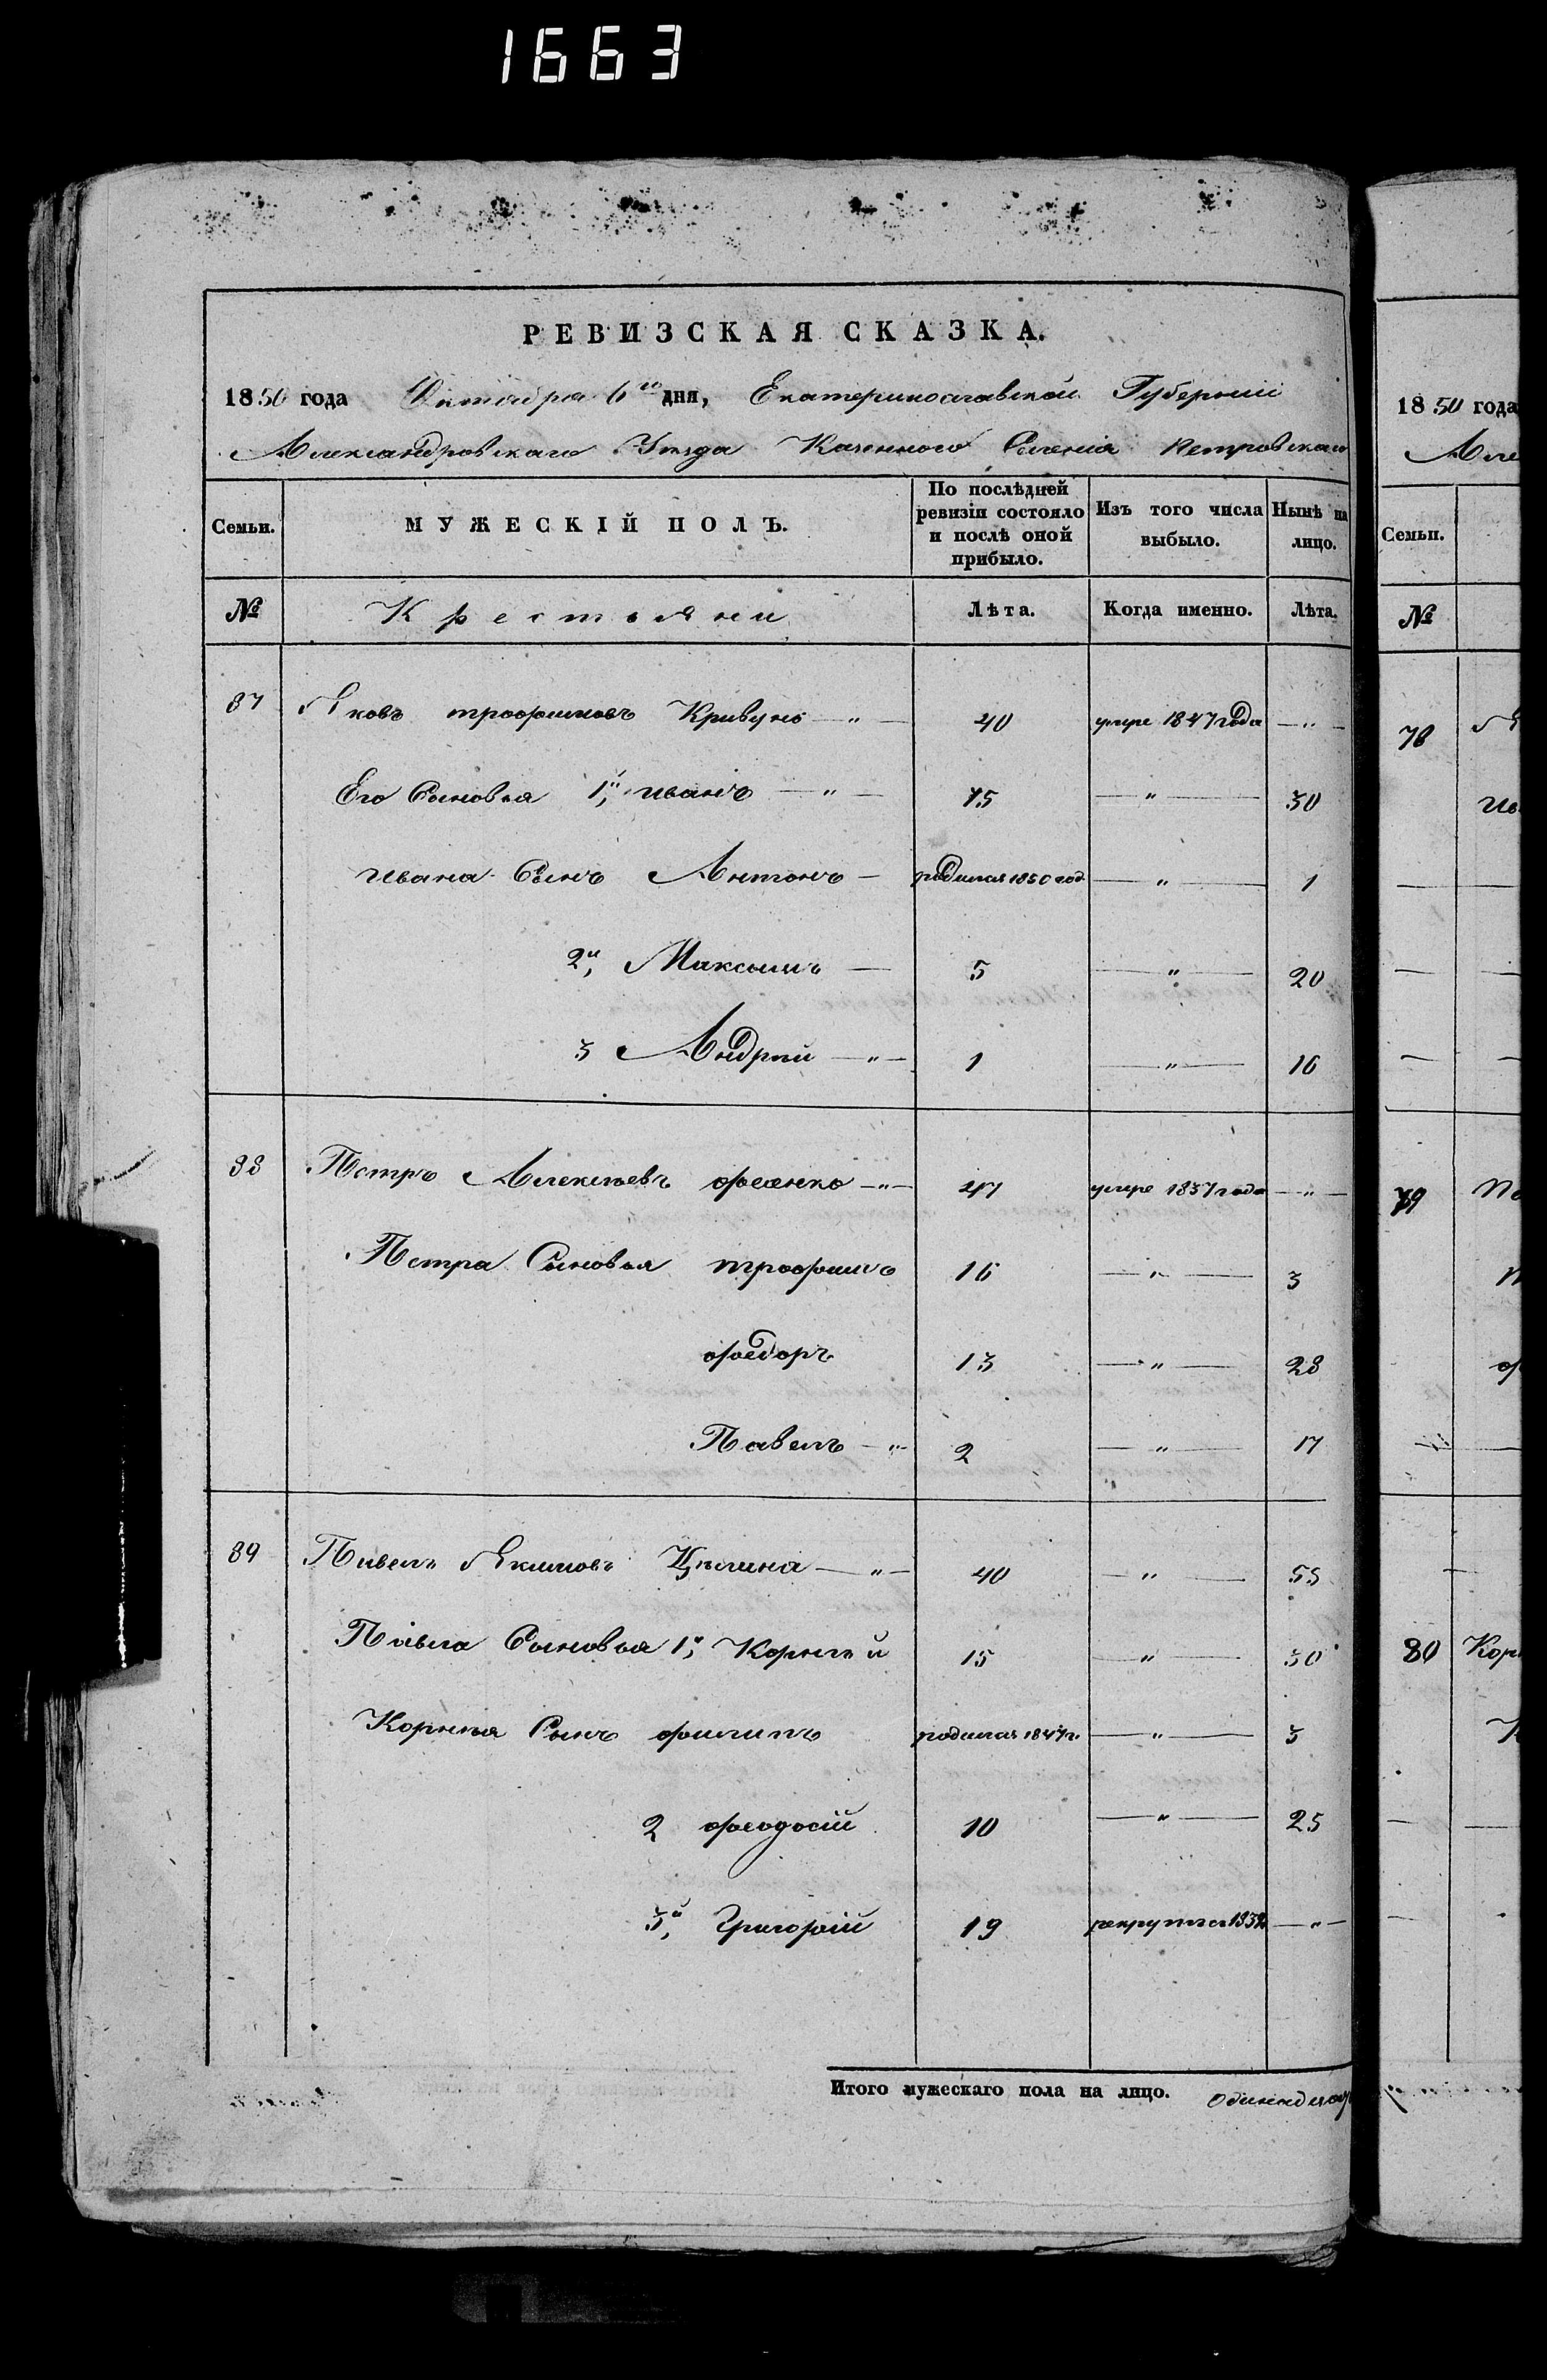 1663
РЕВИЗСКАЯ СКАЗКА.
1850 года Октября 6го дня, Екатеринославской Губернии
Александровскаго Уезда Казенного Селенія Петровскаго
Семьи. МУЖЕСКІЙ ПОЛЪ. По послѣдней ревизіи состояло и послѣ оной прибыло. Изъ того числа выбыло. Нынѣ на лицо.
№ Крестьяни Лѣта. Когда именно. Лѣта.
87 Яковъ трофимовъ Кривунъ — " — 40 умре 1847 года — " —
Его Сыновья 1й, иванъ — " — 15 — " — 30
ивана Сынъ Антонъ — родился 1850 год — " — 1
2й, Максимъ — 5 — " — 20
3 Андрей — " — 1 — " — 16
88 Петръ Алексеевъ — " — 47 умре 1837 года — " —
Петра Сыновья трофимъ 16 — " — 3
федоръ 13 — " — 28
Павелъ — " — 2 — " — 17
89 Павелъ Якимовъ Цѣлина — " — 40 — " — 55
Павла Сыновья 1й, Корнѣй 15 — " — 30
Корнѣя Сынъ филипъ родился 1847 г. — " — 3
2 феодосій 10 — " — 25
3й, Григорій 19 — " —
Итого мужескаго пола на лицо.
1850 года
Але
Семьи.
№
78 Я
Ив
79 Пе
80 Кор